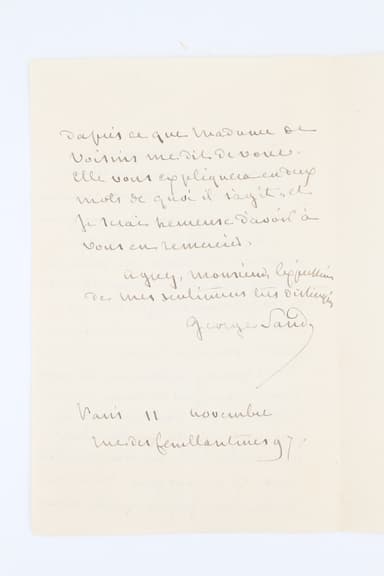 d'après ce que Madame de
Voisins me dit de vous.
Elle vous expliquera en deux
mots de quoi il s'agit, et
je serai heureuse d'avoir à
vous en remercier.
agréez, monsieur, l'expression
de mes sentimens très distingués
George Sand
Paris 11 novembre
rue des feuillantines 97